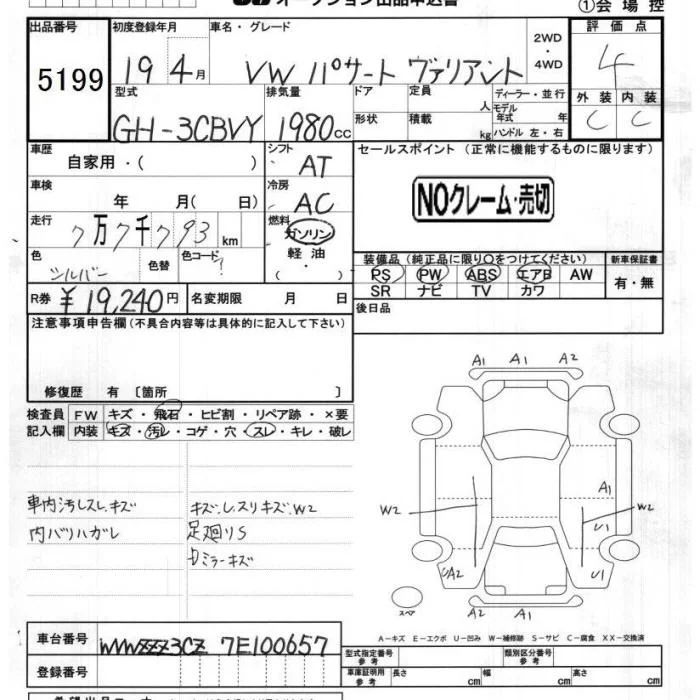 オークション出品申込書
①会場控
出品番号 5199
初度登録年月 19 4月
車名・グレード VW パサート ヴァリアント
2WD・4WD
評価点 4
外装 C 内装 C
型式 GH-3CBVY
排気量 1980cc
ドア
形状
定員 人
積載 kg
ディーラー・並行
モデル年式 年
ハンドル 左・右
車歴 自家用・( )
シフト AT
セールスポイント (正常に機能するものに限ります)
NOクレーム・売切
車検 年 月( 日)
冷房 AC
走行 7万7千793km
燃料 ガソリン
軽油
・( )
色 シルバー 色替 色コード
装備品 (純正品に限り○をつけてください)
新車保証書
PS PW ABS エアB AW
SR ナビ TV カワ
有・無
R券 ¥19,240円
名変期限 月 日
後日品
注意事項申告欄(不具合内容等は具体的に記入して下さい)
修復歴 有 〔箇所 〕
検査員記入欄
FW キズ・飛石・ヒビ割・リペア跡・×要
内装 キズ・汚レ・コゲ・穴・スレ・キレ・破レ
車内汚レスレキズ
内バリハガレ
キズ.レスリキズ.W2
足廻りS
ミラーキズ
A1 A1 A2
A1
W2
W2
U1
UA2
U1
A2 A1
スペ
A-キズ E-エクボ U-凹み W-補修跡 S-サビ C-腐食 XX-交換済
車台番号 WVWZZZ3CZ 7E100657
登録番号
型式指定番号 参考
類別区分番号 参考
車庫証明用 参考
長さ cm 幅 cm 高さ cm